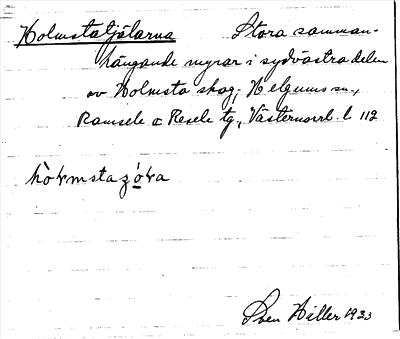 Holmstatjälarna Stora samman-
hängande myrar i sydvästra delen
av Holmsta skog, Helgums sn.,
Ramsele o Resele tg, Västernorrl. l 112
Sven Hiller 1933